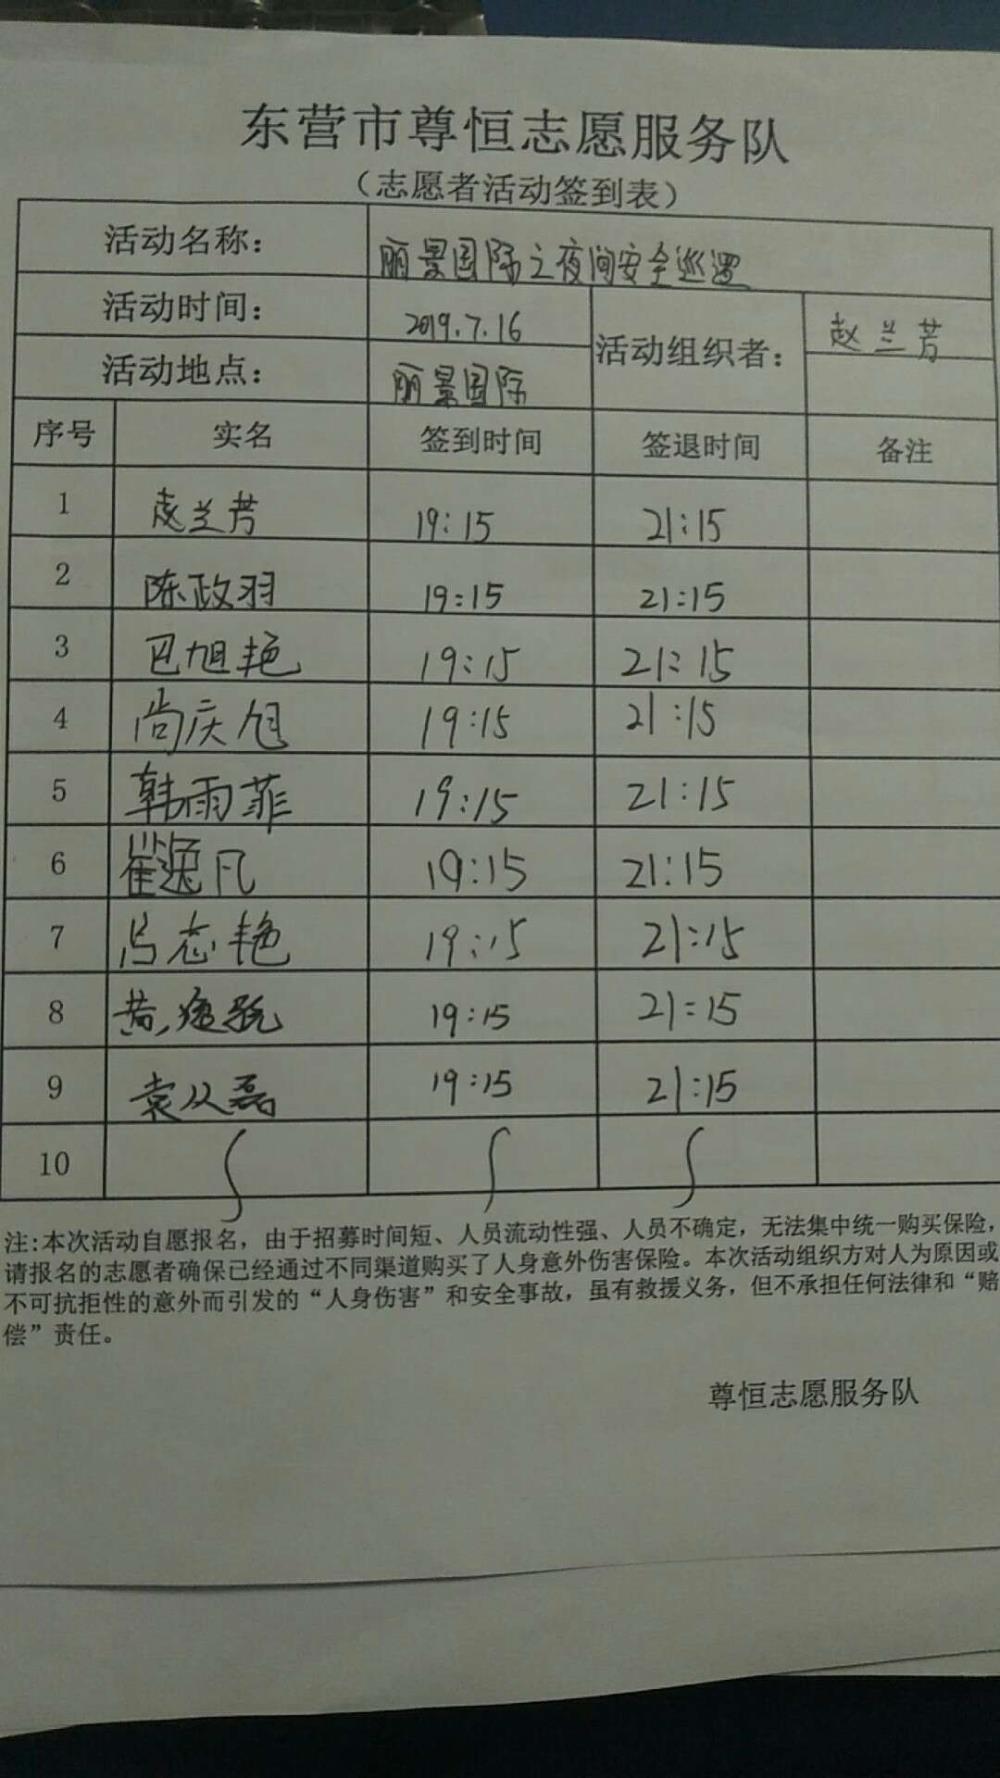 东营市尊恒志愿服务队
（志愿者活动签到表）
活动名称： 丽景国际之夜间安全巡逻
活动时间： 2019.7.16 活动组织者： 赵兰芳
活动地点： 丽景国际
序号 实名 签到时间 签退时间 备注
1 赵兰芳 19:15 21:15
2 陈政羽 19:15 21:15
3 巴旭艳 19:15 21:15
4 尚庆旭 19:15 21:15
5 韩雨菲 19:15 21:15
6 崔逸凡 19:15 21:15
7 冯志艳 19:15 21:15
8 黄 19:15 21:15
9 袁从磊 19:15 21:15
10
注:本次活动自愿报名，由于招募时间短、人员流动性强、人员不确定，无法集中统一购买保险，
请报名的志愿者确保已经通过不同渠道购买了人身意外伤害保险。本次活动组织方对人为原因或
不可抗拒性的意外而引发的“人身伤害”和安全事故，虽有救援义务，但不承担任何法律和“赔
偿”责任。
尊恒志愿服务队